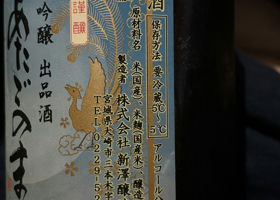 謹醸
吟醸 出品酒
あたごのま
酒
保存方法 要冷蔵 5℃
5℃
アルコール分
原材料名 米(国産)、米麹(国産米)、醸造
製造者 株式会社新澤醸
宮城県大崎市三本木字
TEL0229-52